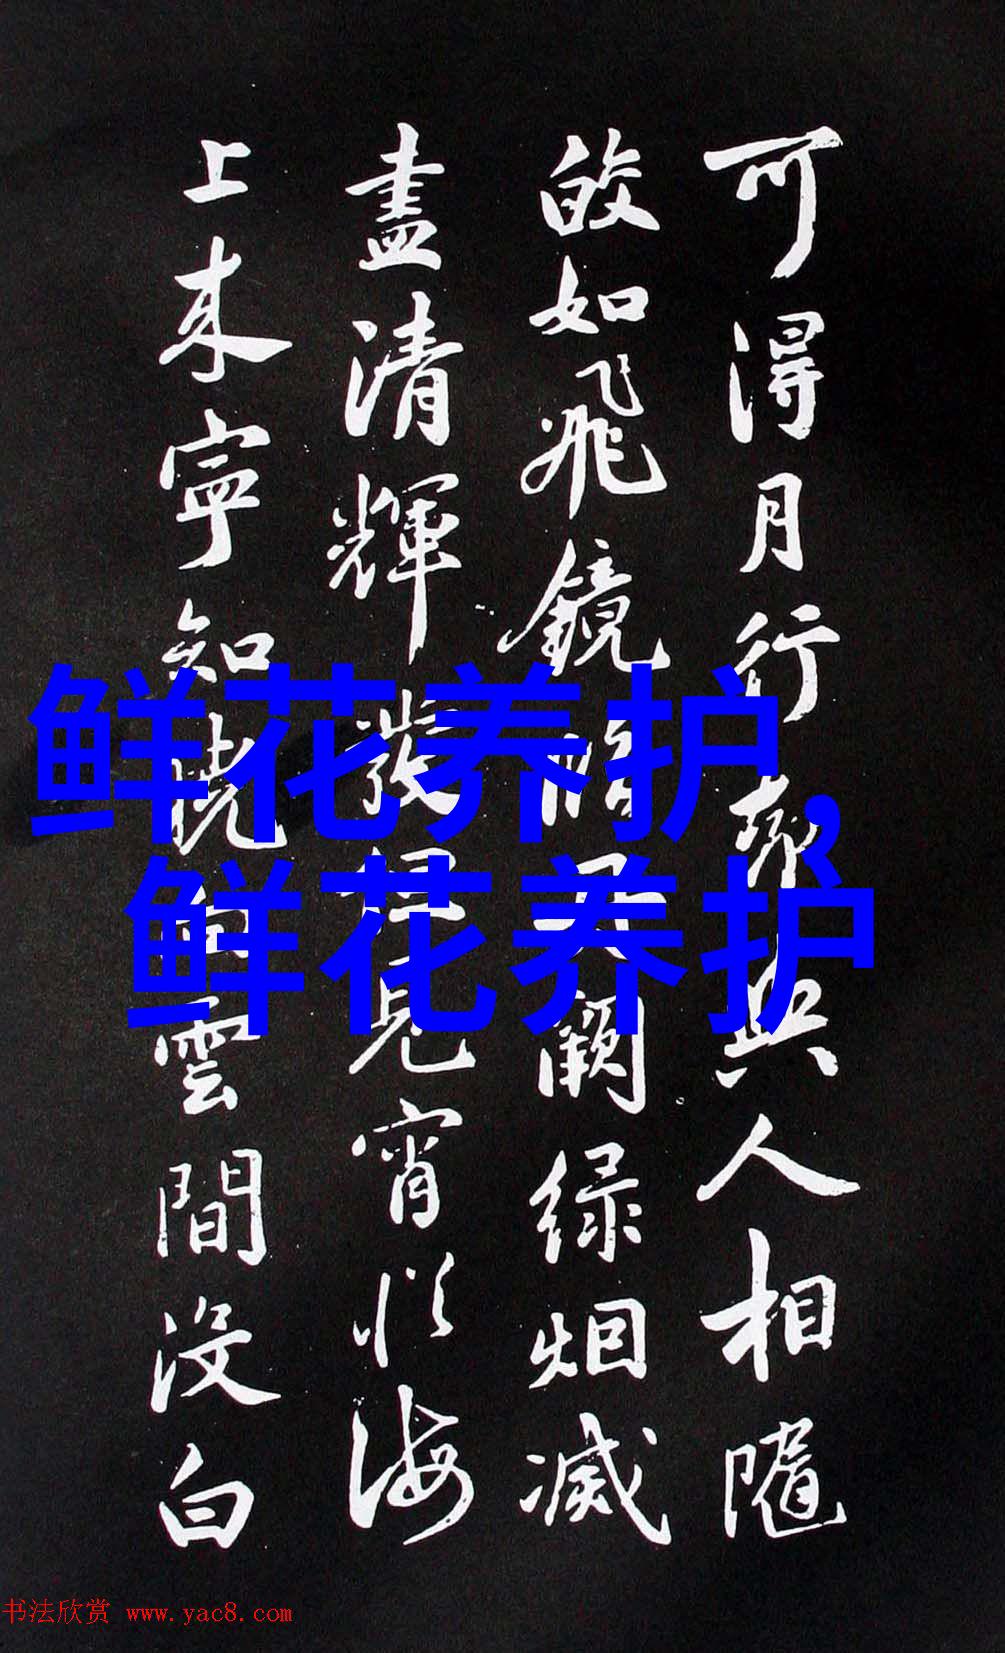 可得月行却與人相隨
皎如飛鏡臨丹闕緑烟滅
盡清輝發但見宵從海
上来寧知曉向雲間没白
鲜花养护,
鲜花养护
书法欣赏 www.yac8.com